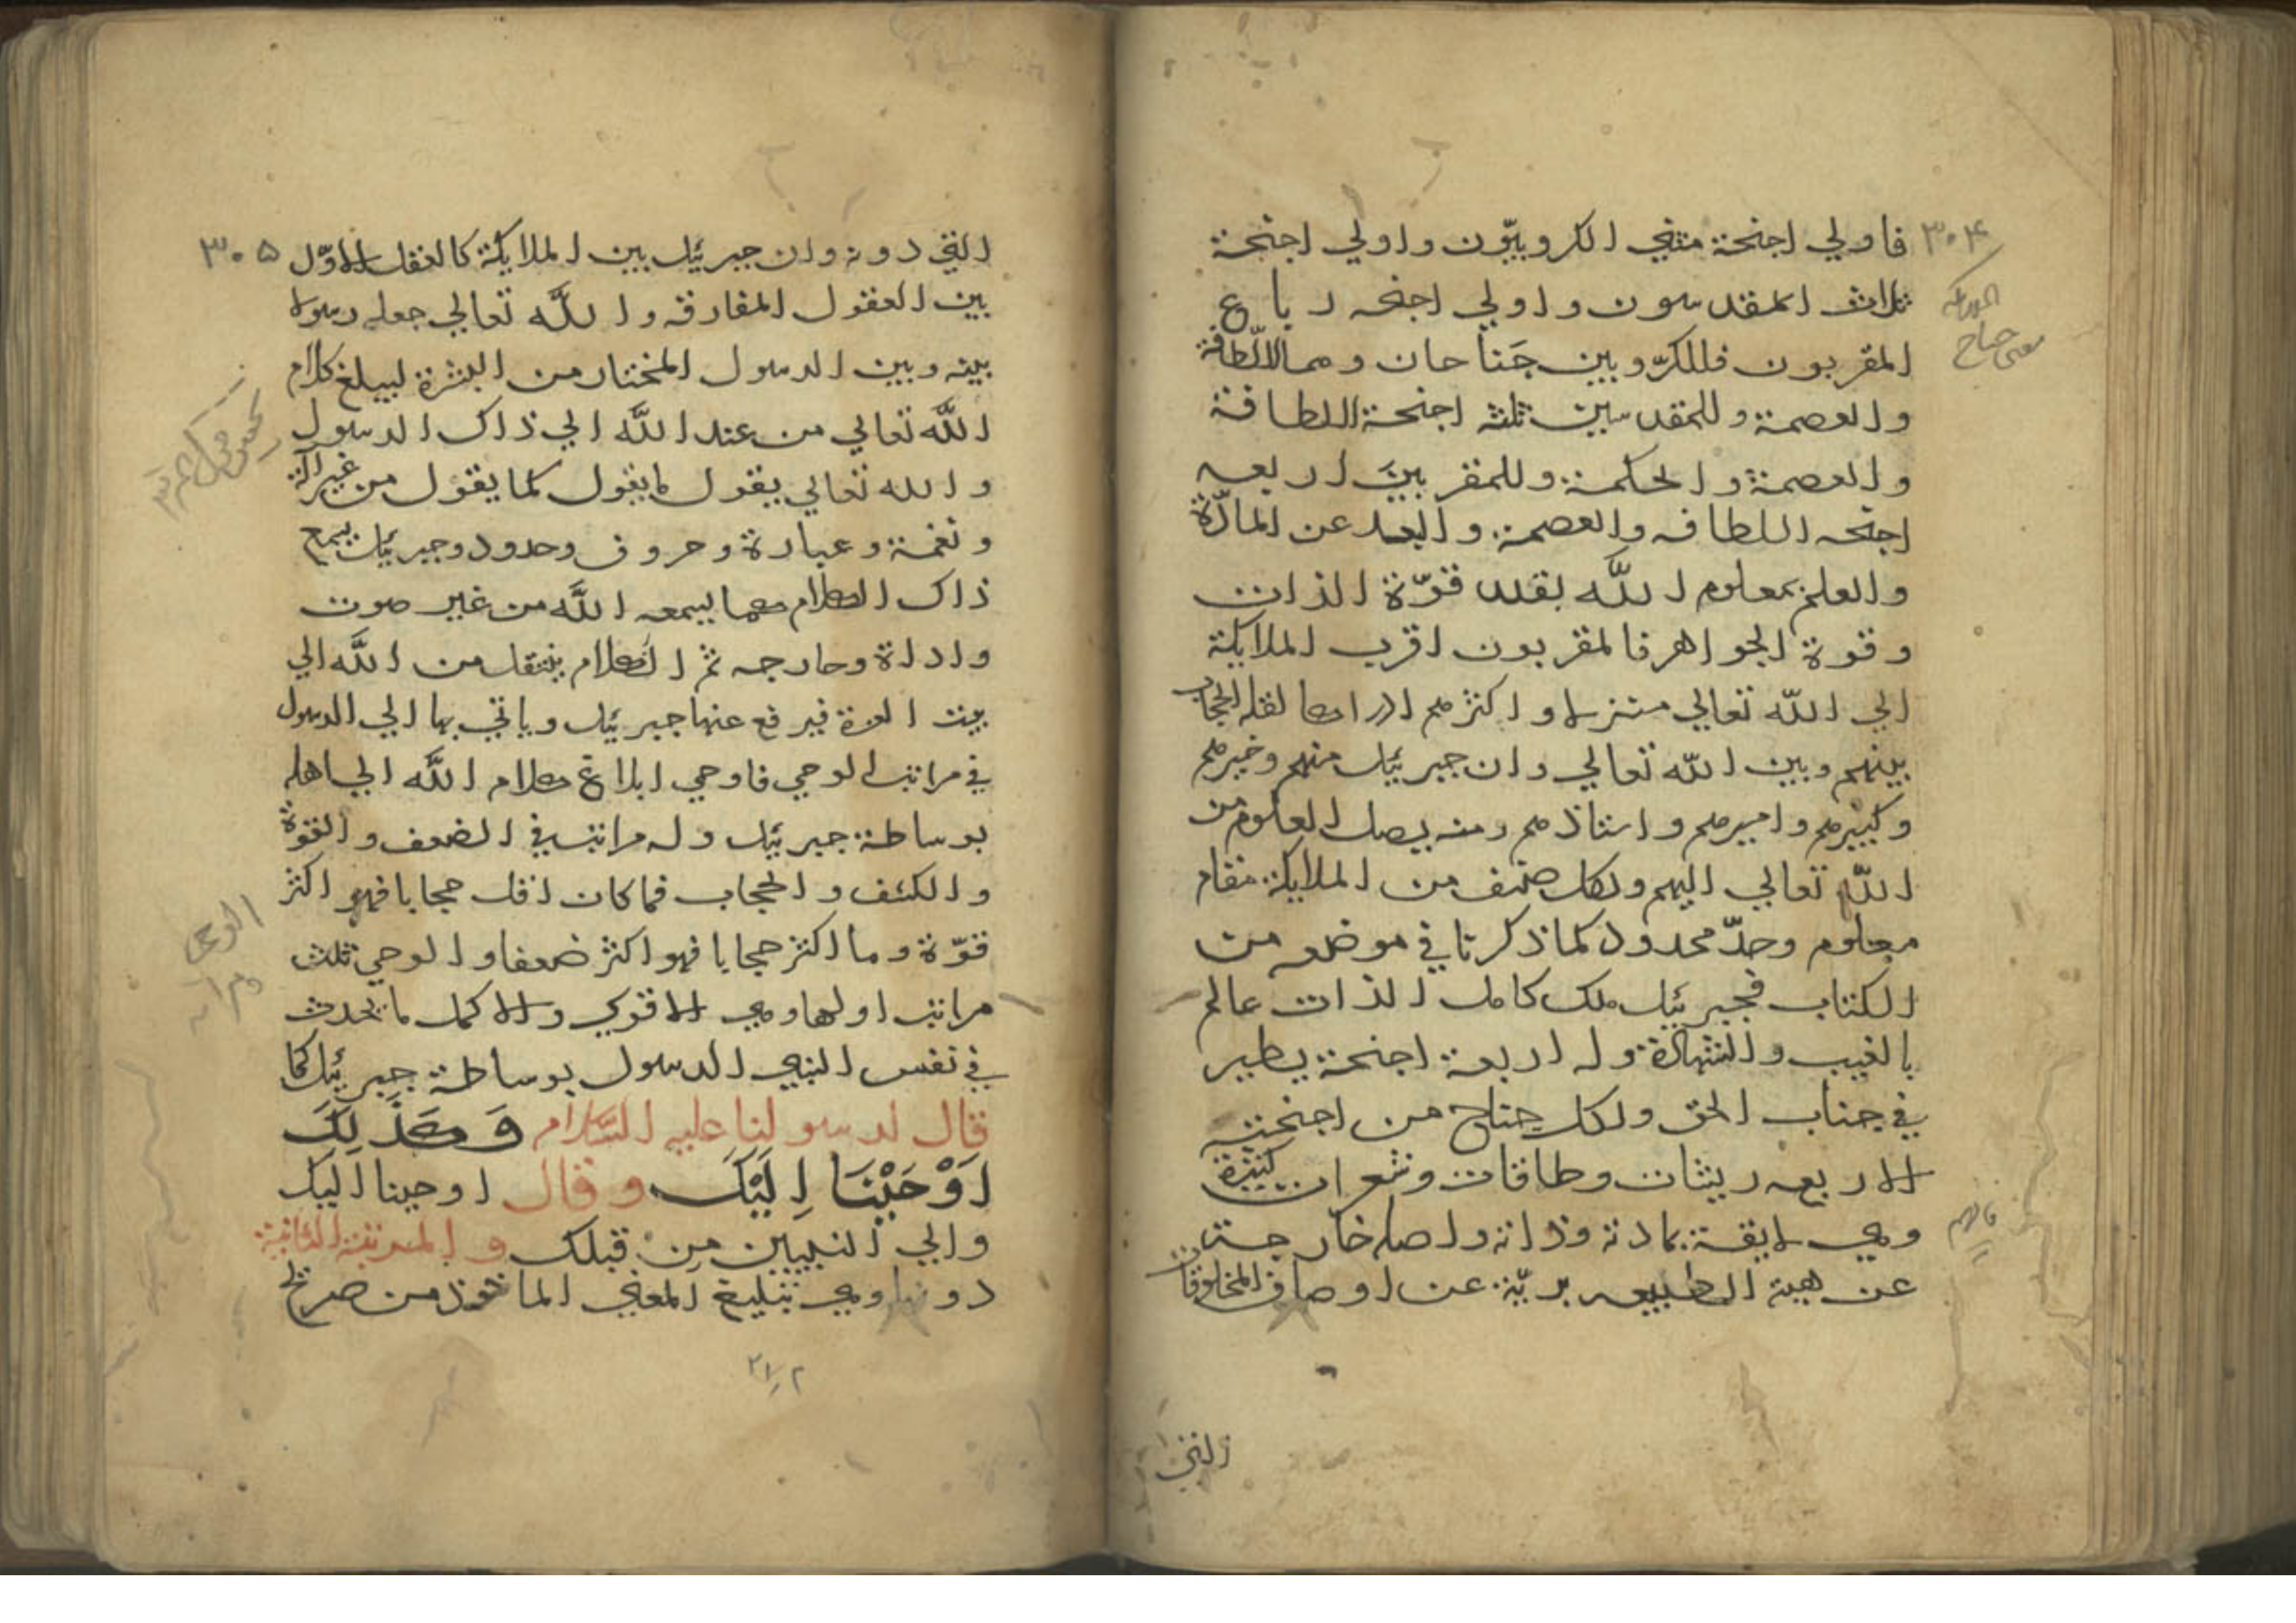 ٣٠٤
فاولي اجنحة مثني الكروبيّون واولي اجنحة
ثلاث المقدسون واولي اجنحه رباع
المقربون فللكرّوبين جَناحان وهما اللطافة
والعصمة وللمقدسين ثلثه اجنحة اللطافة
والعصمة والحكمة وللمقربينَ اربعه
اجنحه اللطافه والعصمة والبعد عن المادّة
والعلم بمعلوم اللّه بقدر قوّة الذات
وقوة الجواهر فالمقربون اقرب الملايكة
الي اللّه تعالي منزلا واكثرهم ادراكا لقله الحجاب
بينهم وبين اللّه تعالي وان جبرئيل منهم وخيرهم
وكبيرهم واميرهم واستاذهم ومنه يصل العلوم من
اللّه تعالي اليهم ولكل صنف من الملايكة مقام
معلوم وحدّ محدود كما ذكرنا في موضعه من
الكتاب فجبرئيل ملك كامل الذات عالم
بالغيب والشهادة وله اربعة اجنحة يطير
في جناب الحق ولكل جناح من اجنحته
الاربعه ريشات وطاقات وشعرات كثيرة
وهي لايقة بمادته وذاته واصله خارجة
عن هيئة الطبيعه بريّة عن اوصاف المخلوقات
معنى جناح
التي
٣٠٥
التي دونه وان جبرئيل بين الملايكة كالعقل الاوّل
بين العقول المفارقه واللّه تعالي جعله رسولا
بينه وبين الرسول المختار من البشرة ليبلغ كلام
اللّه تعالي من عند اللّه الي ذاك الرسول
والله تعالي يقول ما يقول كما يقول من غير آلة
ونغمة وعبارة وحروف وحدود وجبرئيل يسمع
ذاك الكلام كما يسمعه اللّه من غير صوت
واداة وجارجه ثم الكلام ينتقل من اللّه الي
بيت العزة فيرفع عنها جبرئيل وياتي بها الي الرسول
في مراتب الوحي فاوحي ابلاغ كلام اللّه الي اهله
بوساطة جبرئيل وله مراتب في الضعف والقوة
والكشف والحجاب فما كان اقل حجابا فهو اكثر
قوّة وما اكثر حجابا فهو اكثر ضعفا والوحي ثلث
مراتب اولها وهي الاقوي والاكمل ما يحدث
في نفس النبي الرسول بوساطة جبرئيل كما
قال لرسولنا عليه السَّلام وَكَذَلِكَ
اَوْحَيْنَا اِلَيْكَ وقال اوحينا اليك
والي النبيين مِن قبلك والمرتبة الثانية
دونها وهي تبليغ المعني الماخوذ من صريح
الوحي